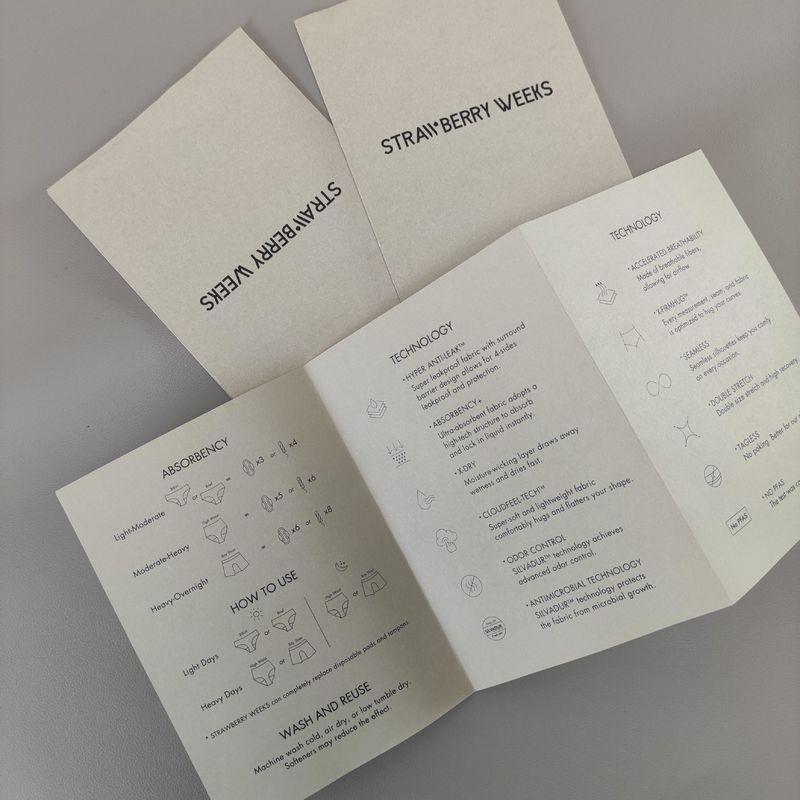 STRAWBERRY WEEKS
STRAWBERRY WEEKS
ABSORBENCY
Light-Moderate
Bikini
or
Brief
=
x3
or
x4
Moderate-Heavy
High Waist
=
x5
or
x6
Heavy-Overnight
Boy Short
=
x6
or
x8
HOW TO USE
Light Days
Bikini
or
Brief
High Waist
or
Boy Short
Heavy Days
High Waist
or
Boy Short
* STRAWBERRY WEEKS can completely replace disposable pads and tampons.
WASH AND REUSE
Machine wash cold, air dry, or low tumble dry.
Softeners may reduce the effect.
TECHNOLOGY
• HYPER ANTI-LEAK™
Super leakproof fabric with surround
barrier design allows for 4-sides
leakproof and protection.
• ABSORBENCY+
Ultra-absorbent fabric adopts a
high-tech structure to absorb
and lock in liquid instantly.
• X-DRY
Moisture-wicking layer draws away
wetness and dries fast.
• CLOUDFEEL-TECH™
Super-soft and lightweight fabric
comfortably hugs and flatters your shape.
• ODOR CONTROL
SILVADUR™ technology achieves
advanced odor control.
• ANTIMICROBIAL TECHNOLOGY
SILVADUR™ technology protects
the fabric from microbial growth.
SILVADUR
TECHNOLOGY
• ACCELERATED BREATHABILITY
Made of breathable fibers,
allowing for airflow.
• X-FIRMHUG™
Every measurement, seam, and fabric
is optimized to hug your curves.
• SEAMLESS
Seamless silhouettes keep you comfy
on every occasion.
• DOUBLE STRETCH
Double size stretch and high recovery.
• TAGLESS
No poking. Better for our
• NO PFAS
The test was
No PFAS